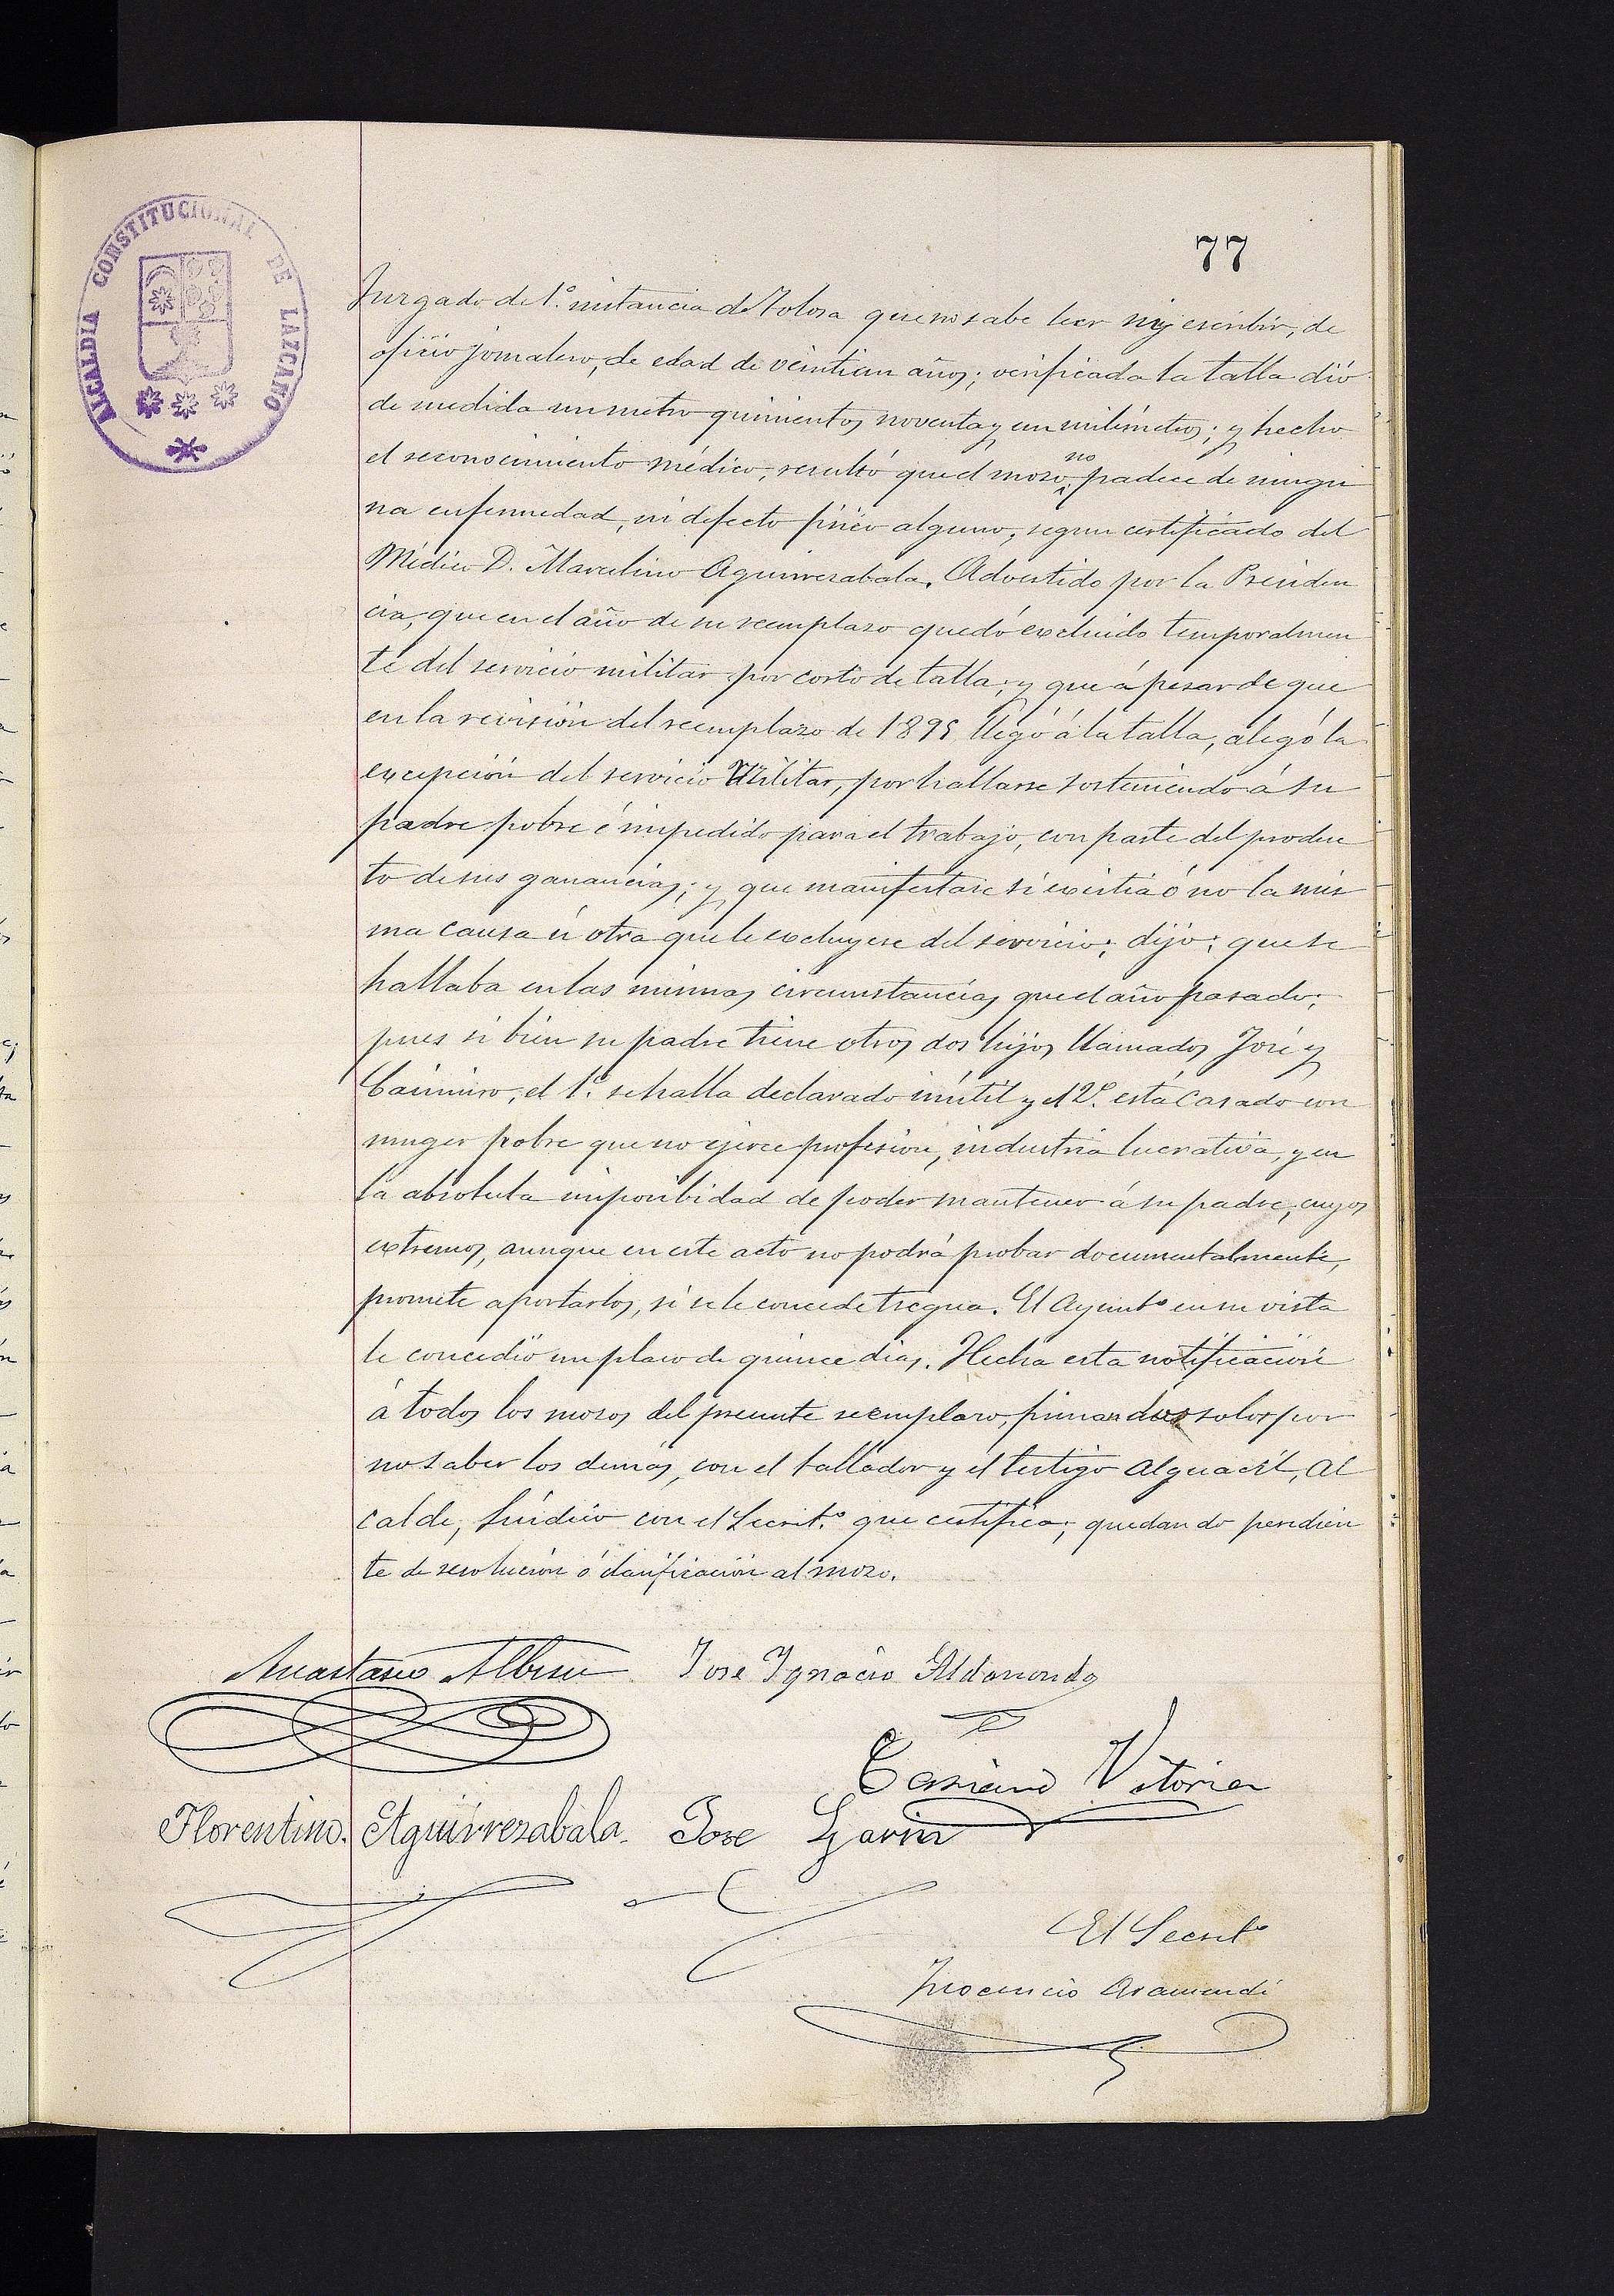 ALCALDIA CONSTITUCIONAL DE LAZCANO
77
Juzgado de 1º. instancia de Tolosa que no sabe leer ni escribir, de
oficio jornalero, de edad de veintiun años; verificada la talla dió
de medida un metro quinientos noventa y un milímetros; y hecho
el reconocimiento médico, resultó que el mozo no padece de ningu
na enfermedad, ni defecto físico alguno, segun certificado del
Médico D. Marcelino Aguirrezabala. Advertido por la Presiden
cia, que en el año de su reemplazo quedó excluido temporalmen
te del servicio militar por corto de talla, y que á pesar de que
en la revisión del reemplazo de llegó á la talla, alegó la
excepción del servicio Militar, por hallarse sosteniendo á su
padre pobre é impedido para el trabajo, con parte del produc
to de sus ganancias; y que manifestase si existia ó no la mis
ma causa ú otra que le excluyese del servicio; dijo: que se
hallaba en las mismas circunstancias que el año pasado;
pues si bien su padre tiene otros dos hijos llamados José y
Casimiro, el 1º. se halla declarado inútil y el 2º. está casado con
muger pobre que no ejerce profesion, industria lucrativa, y en
la absoluta imposibidad de poder mantener á su padre, cuyos
extremos, aunque en este acto no podrá probar documentalmente,
promete aportarlos, si se le concede tregua. El Ayuntº en su vista
le concedió un plazo de quince dias. Hecha esta notificación
á todos los mozos del presente reemplazo, firman dos solos por
no saber los demás, con el tallador y el testigo Alguacil, Al
calde, Síndico con el Secretº que certifica; quedando pendien
te de resolución ó clasificación al mozo.
Anastasio Albisu Jose Ignacio Aldanondo
Casiano Vitoria
Florentino Aguirrezabala. Jose Garin
El Secretº
Inocencio Aramendi